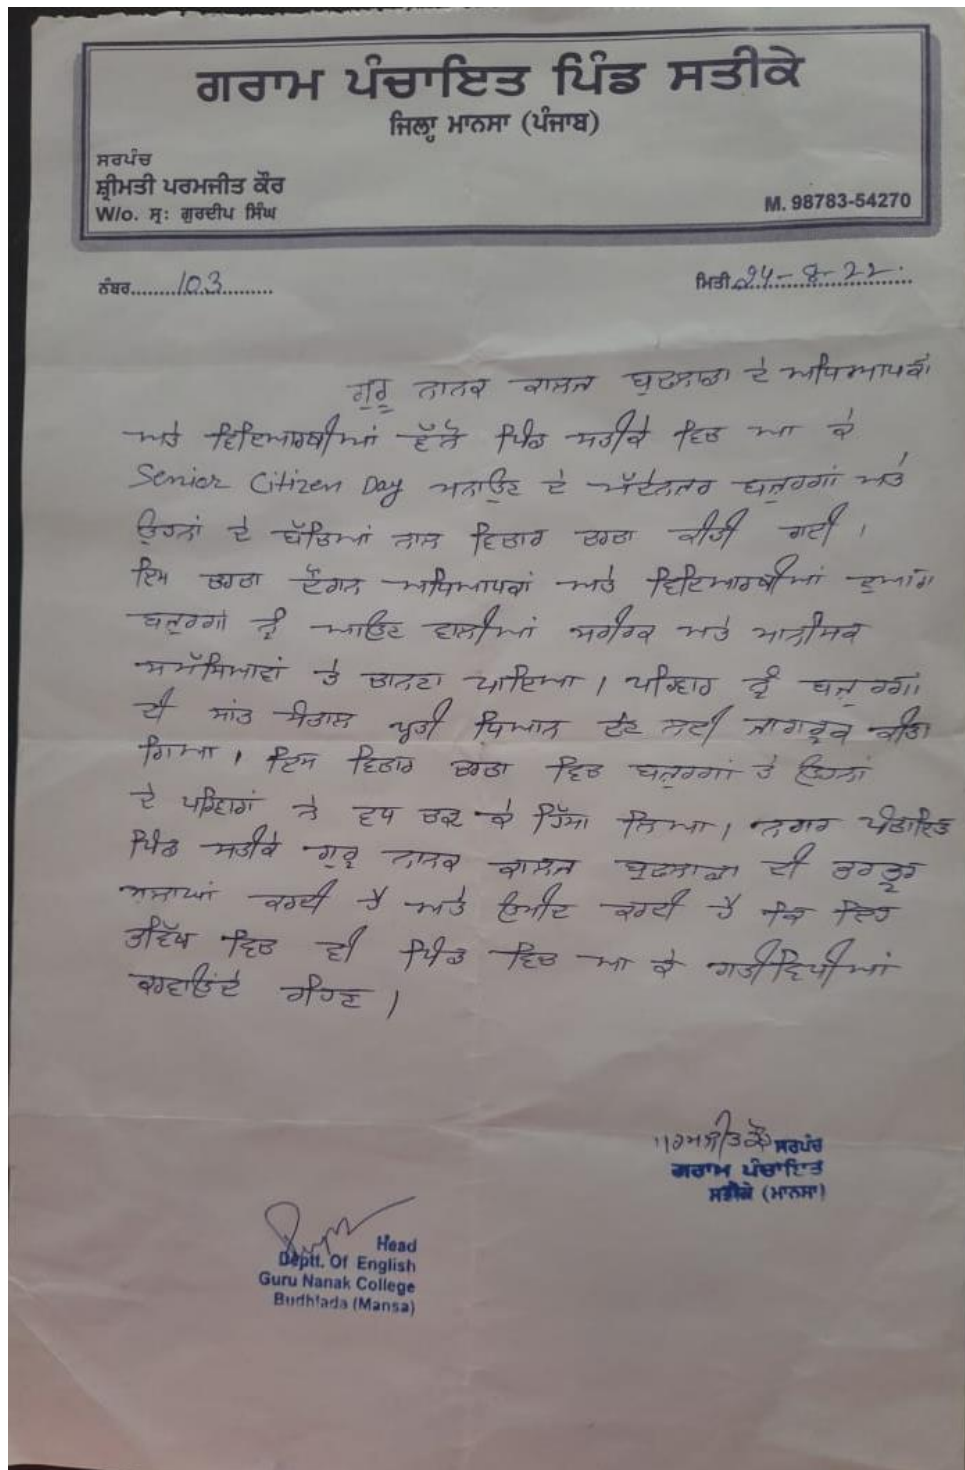 ਗਰਾਮ ਪੰਚਾਇਤ ਪਿੰਡ ਸਤੀਕੇ
ਜਿਲ੍ਹਾ ਮਾਨਸਾ (ਪੰਜਾਬ)
ਸਰਪੰਚ
ਸ਼੍ਰੀਮਤੀ ਪਰਮਜੀਤ ਕੌਰ
W/o. ਸ੍ਰ: ਗੁਰਦੀਪ ਸਿੰਘ
M. 98783-54270
ਨੰਬਰ.......103.........
ਮਿਤੀ 24-8-22
ਗੁਰੂ ਨਾਨਕ ਕਾਲਜ ਬੁਢਲਾਡਾ ਦੇ ਅਧਿਆਪਕਾਂ
ਅਤੇ ਵਿਦਿਆਰਥੀਆਂ ਵੱਲੋਂ ਪਿੰਡ ਸਤੀਕੇ ਵਿਚ ਆ ਕੇ
Senior Citizen Day ਮਨਾਉਣ ਦੇ ਮੱਦੇਨਜਰ ਬਜ਼ੁਰਗਾਂ ਅਤੇ
ਉਹਨਾਂ ਦੇ ਬੱਚਿਆਂ ਨਾਲ ਵਿਚਾਰ ਚਰਚਾ ਕੀਤੀ ਗਈ ।
ਇਸ ਚਰਚਾ ਦੌਰਾਨ ਅਧਿਆਪਕਾਂ ਅਤੇ ਵਿਦਿਆਰਥੀਆਂ ਦੁਆਰਾ
ਬਜ਼ੁਰਗਾਂ ਨੂੰ ਆਉਣ ਵਾਲੀਆਂ ਸਰੀਰਕ ਅਤੇ ਮਾਨਸਿਕ
ਸਮੱਸਿਆਵਾਂ ਤੇ ਚਾਨਣਾ ਪਾਇਆ । ਪਰਿਵਾਰ ਨੂੰ ਬਜ਼ੁਰਗਾਂ
ਦੀ ਸਾਂਭ ਸੰਭਾਲ ਪ੍ਰਤੀ ਧਿਆਨ ਦੇਣ ਲਈ ਜਾਗਰੂਕ ਕੀਤਾ
ਗਿਆ । ਇਸ ਵਿਚਾਰ ਚਰਚਾ ਵਿਚ ਬਜ਼ੁਰਗਾਂ ਤੇ ਉਹਨਾਂ
ਦੇ ਪਰਿਵਾਰਾਂ ਨੇ ਵਧ ਚੜ ਕੇ ਹਿੱਸਾ ਲਿਆ । ਨਗਰ ਪੰਚਾਇਤ
ਪਿੰਡ ਸਤੀਕੇ ਗੁਰੂ ਨਾਨਕ ਕਾਲਜ ਬੁਢਲਾਡਾ ਦੀ ਭਰਪੂਰ
ਸ਼ਲਾਘਾ ਕਰਦੀ ਹੈ ਅਤੇ ਉਮੀਦ ਕਰਦੀ ਹੈ ਕਿ ਇਹ
ਭਵਿੱਖ ਵਿਚ ਵੀ ਪਿੰਡ ਵਿਚ ਆ ਕੇ ਗਤੀਵਿਧੀਆਂ
ਕਰਵਾਉਂਦੇ ਰਹਿਣ ।
ਪਰਮਜੀਤ ਕੌਰ ਸਰਪੰਚ
ਗਰਾਮ ਪੰਚਾਇਤ
ਸਤੀਕੇ (ਮਾਨਸਾ)
Head
Deptt. Of English
Guru Nanak College
Budhlada (Mansa)